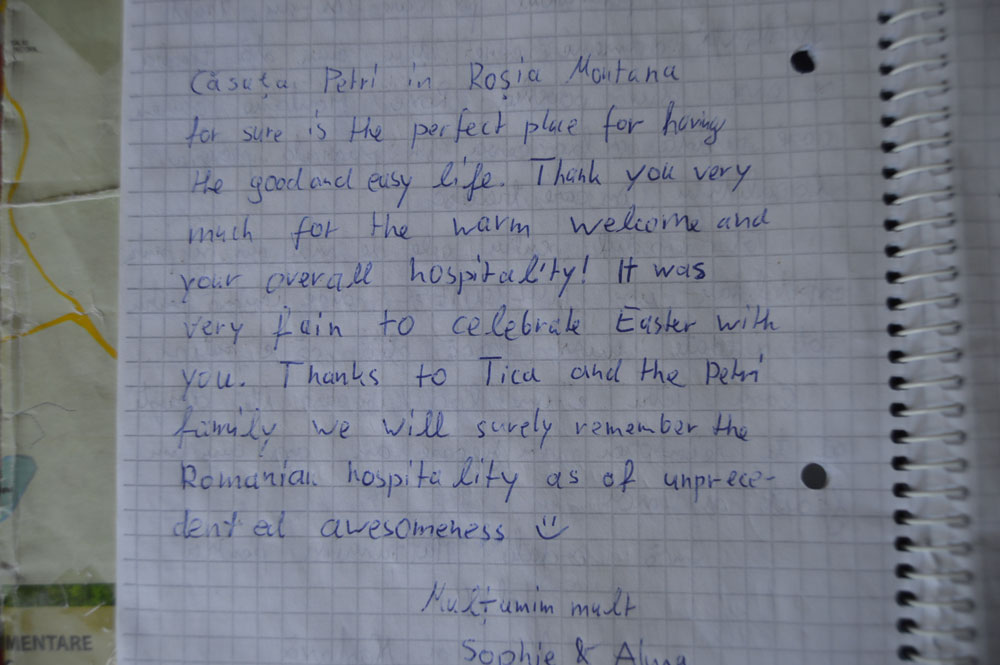 Căsuța Petri in Roșia Montana
for sure is the perfect place for having
the good and easy life. Thank you very
much for the warm welcome and
your overall hospitality! It was
very fain to celebrate Easter with
you. Thanks to Tica and the Petri
family we will surely remember the
Romanian hospitality as of unprece-
dented awesomeness
Mulțumim mult
Sophie &
MENTARE